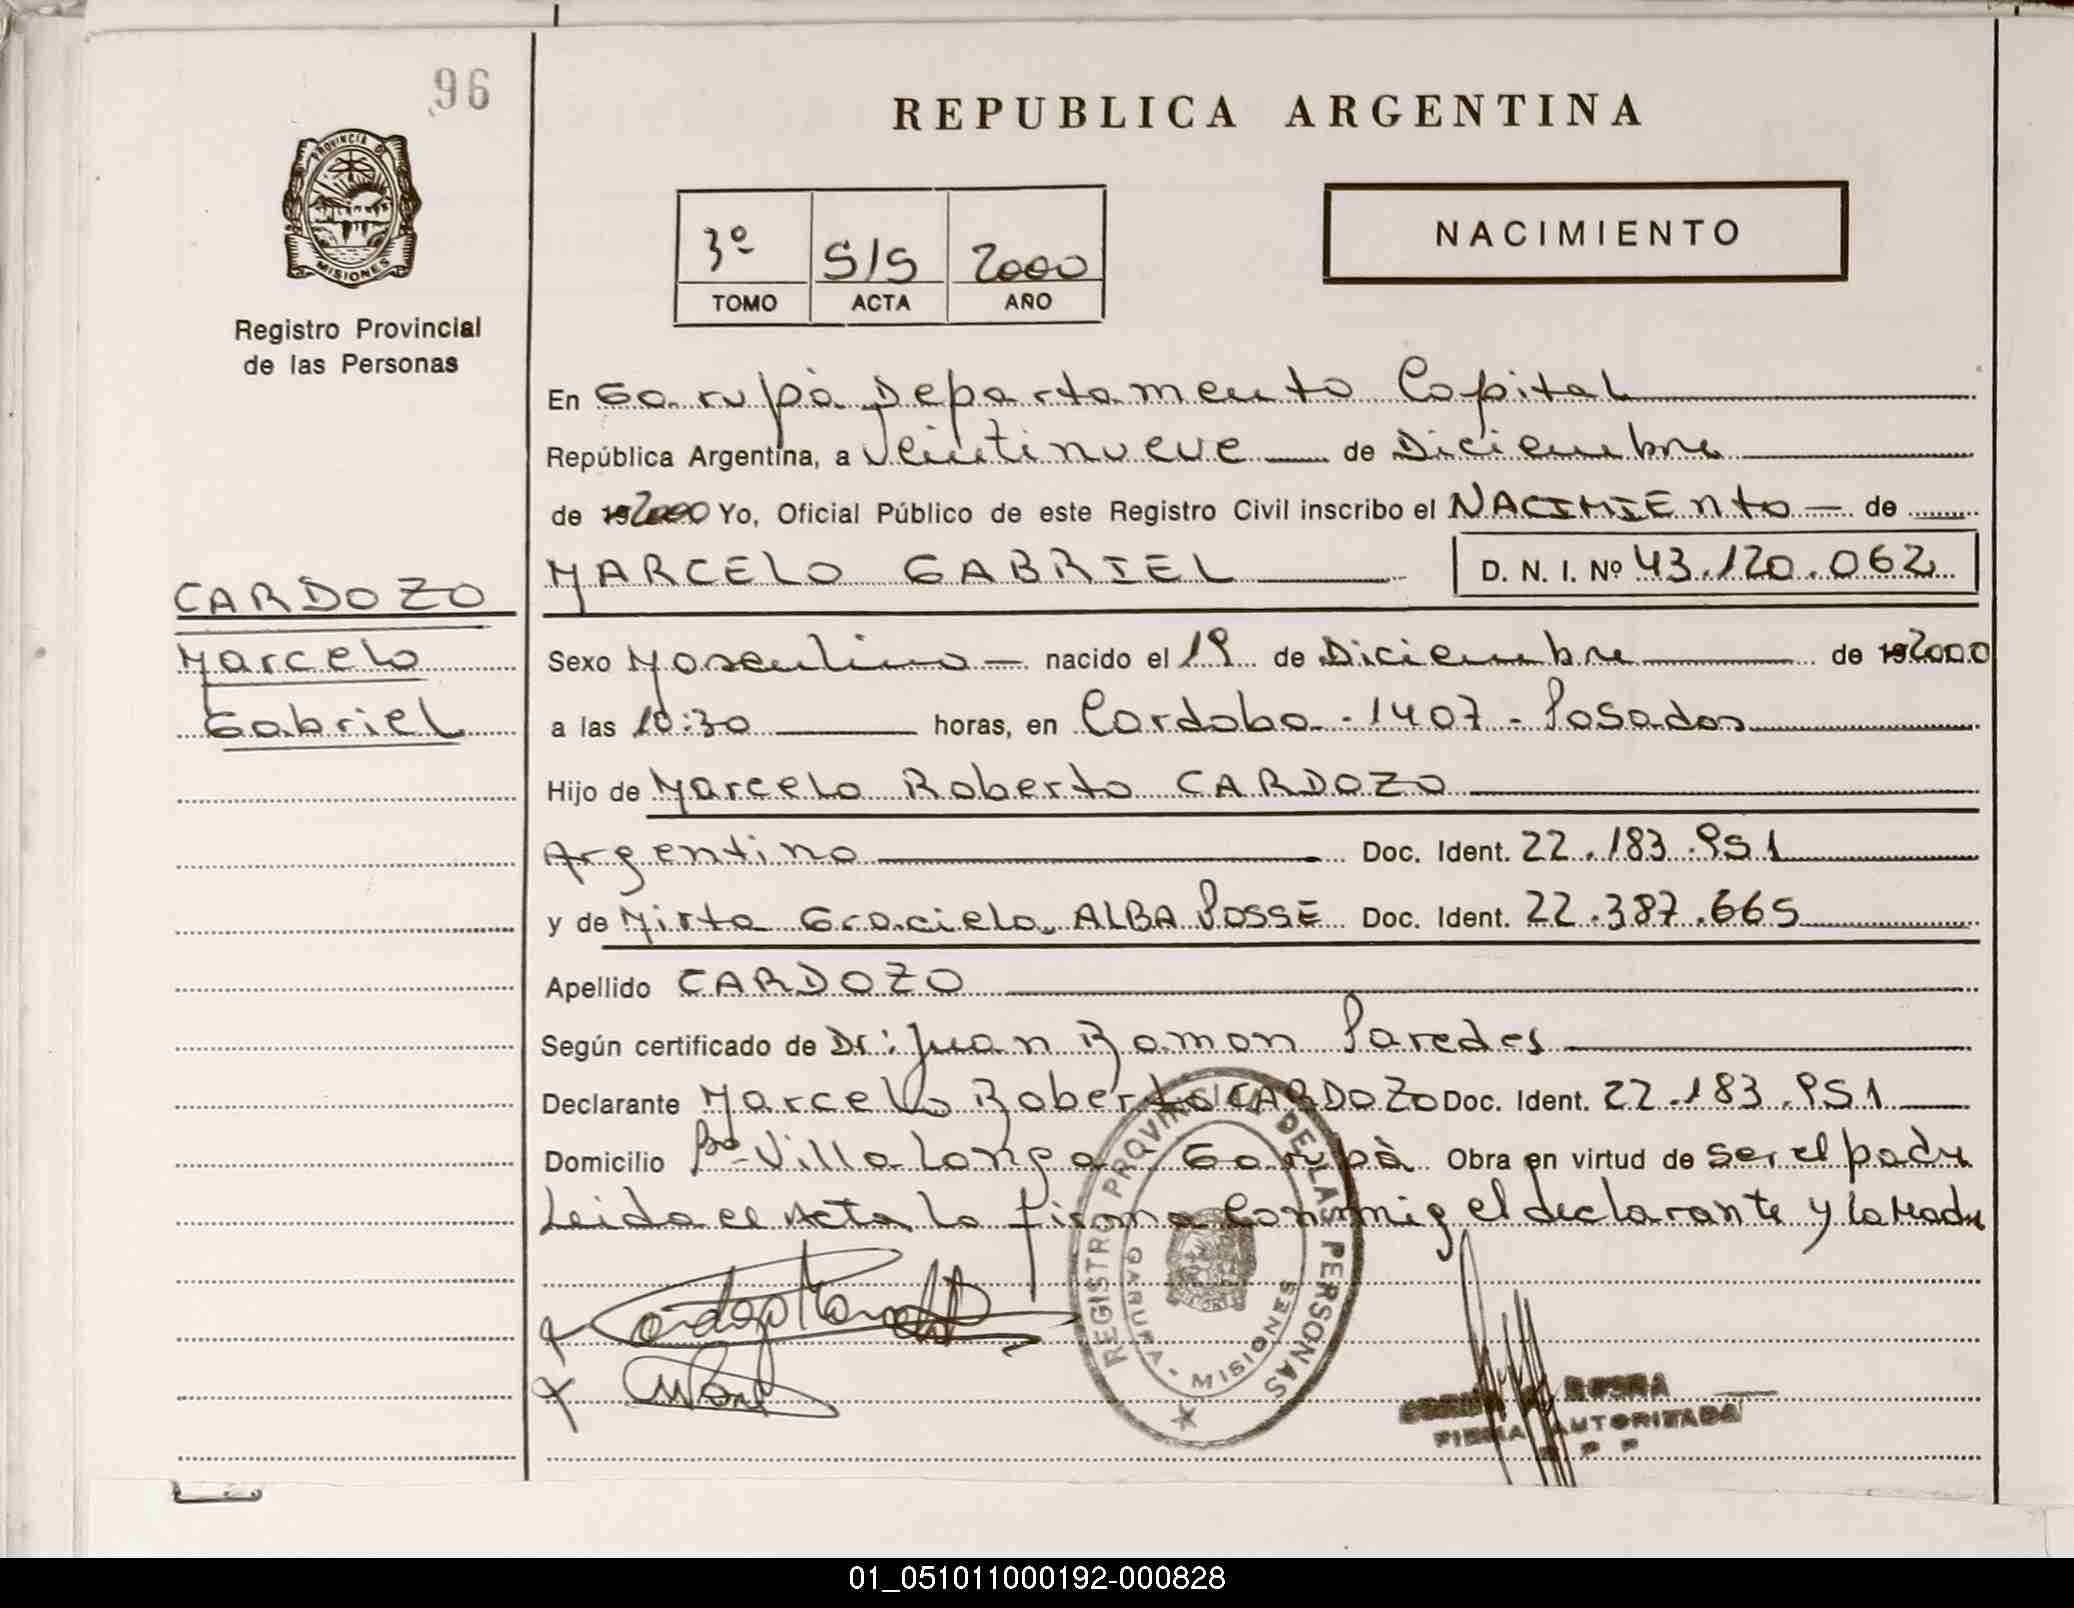 96
REPUBLICA ARGENTINA
PROVINCIA DE
MISIONES
Registro Provincial
de las Personas
3º S/S 2000
TOMO ACTA AÑO
NACIMIENTO
En Garupà Departamento Capital
República Argentina, a Veintinueve de Diciembre
de 192000 Yo, Oficial Público de este Registro Civil inscribo el NACIMIENTO de
MARCELO GABRIEL D. N. I. Nº 43.120.062
CARDOZO
Marcelo
Gabriel
Sexo Masculino nacido el 19 de Diciembre de 192000
a las 10:30 horas, en Cordoba - 1407 - Posadas
Hijo de Marcelo Roberto CARDOZO
Argentino Doc. Ident. 22.183.951
y de Mirta Graciela ALBA POSSE Doc. Ident. 22.387.665
Apellido CARDOZO
Según certificado de Dr: Juan Ramon Paredes
Declarante Marcelo Roberto CARDOZO Doc. Ident. 22.183.951
Domicilio Bº Villa Longa Garupà Obra en virtud de ser el padre
Leida el Acta la firma Conmigo el declarante y la Madre
REGISTRO PROVINCIAL DE LAS PERSONAS
GARUPA - MISIONES
FIRMA AUTORIZADA
R P P
01_051011000192-000828